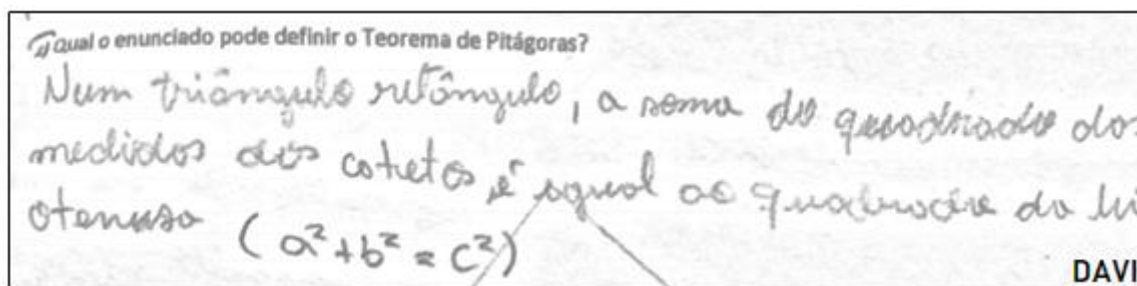 Qual o enunciado pode definir o Teorema de Pitágoras?
Num triângulo retângulo, a soma do quadrado das
medidas dos catetos é igual ao quadrado da hi
otenusa (a² + b² = c²)
DAVI